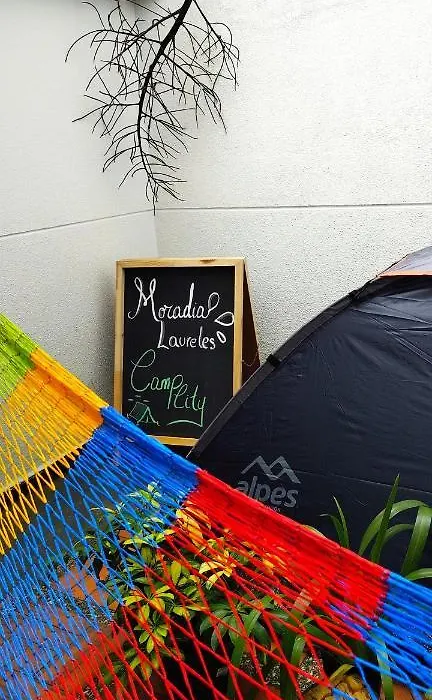 Moradial
Laureles
Camplity
alpes